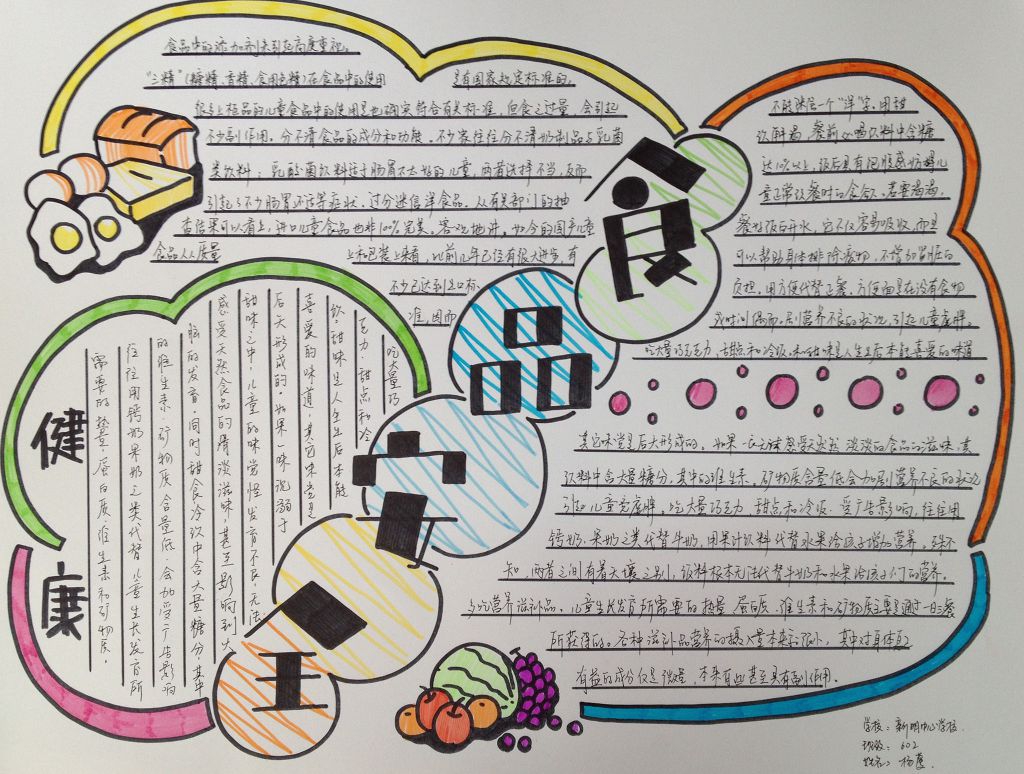 食品中的添加剂未引起高度重视。
"三精"(糖精、香精、食用色精)在食品中的使用 是有国家规定标准的,
很多上柜品的儿童食品中的使用量也确实符合有关标准,但食之过量,会引起
不少副作用。分不清食品的成分和功能。不少家长往往分不清奶制品与乳菌
类饮料;乳酸菌饮料适于肠胃不太好的儿童,两者选择不当,反而
引起了不少肠胃不适等症状。过分迷信洋食品。从有关部门的抽
查结果可以看出,进口儿童食品也非100%完美。客观地讲,如今的国产儿童
食品从质量 上和包装上来看,比前几年已经有很大进步,有
不少已达到出口标
准,因而
不能迷信一个"洋"字。用甜
饮料
餐前必喝饮料中含糖
达10%以上,饮后具有饱胀感,妨碍儿
童正常就餐时的食欲。若要解渴,
最好饮白开水,它不仅容易吸收,而且
可以帮助身体排除废物,不增加肾脏的
负担。用方便代替正餐。方便面是在没有食物
或时间
引起儿童虚胖。
吃大量巧克力、甜点和冷饮,味甜味是人生之后本能喜爱的味道
食品安全
健康
吃大量巧
克力、甜点和冷
饮。甜味是人生之后本能
喜爱的味道,其它味觉是
后天形成的。如果一味沉溺于
甜味之中,儿童的味
发育不良,无法
感受天然食品的清淡滋味,甚至影响到大
脑的发育,同时甜食冷饮中含大量糖分,其中
的胆生素、矿物质含量低,会加
受广告影响
往往用钙奶果奶之类代替
儿童生长发育所
需要的
蛋白质、维生素和矿物质。
其它味觉是后天形成的。如果一
淡淡的食品的滋味,其
饮料中含大量糖分,其中的维生素、矿物质含量低会加剧营养不良的状况
引起儿童虚胖。吃大量巧克力、甜点和冷饮。受广告影响,往往用
钙奶、果奶之类代替牛奶,用果汁饮料代替水果给孩子增加营养,殊不
知,两者之间有着天壤之别,饮料根本无法代替牛奶和水果给孩子们的营养。
多吃营养滋补品。儿童生长发育所需要的热量、蛋白质、维生素和矿物质主要是通过一日三餐
所获得的。各种滋补品营养的摄入量本来就很小,其中对身体更
有益的成分仅是微量,本来有些甚至具有副作用。
学校:新明中心学校
班级:602
姓名:杨